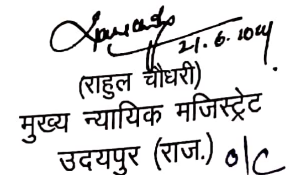 21.6.2024
(राहुल चौधरी)
मुख्य न्यायिक मजिस्ट्रेट
उदयपुर (राज.) o/c